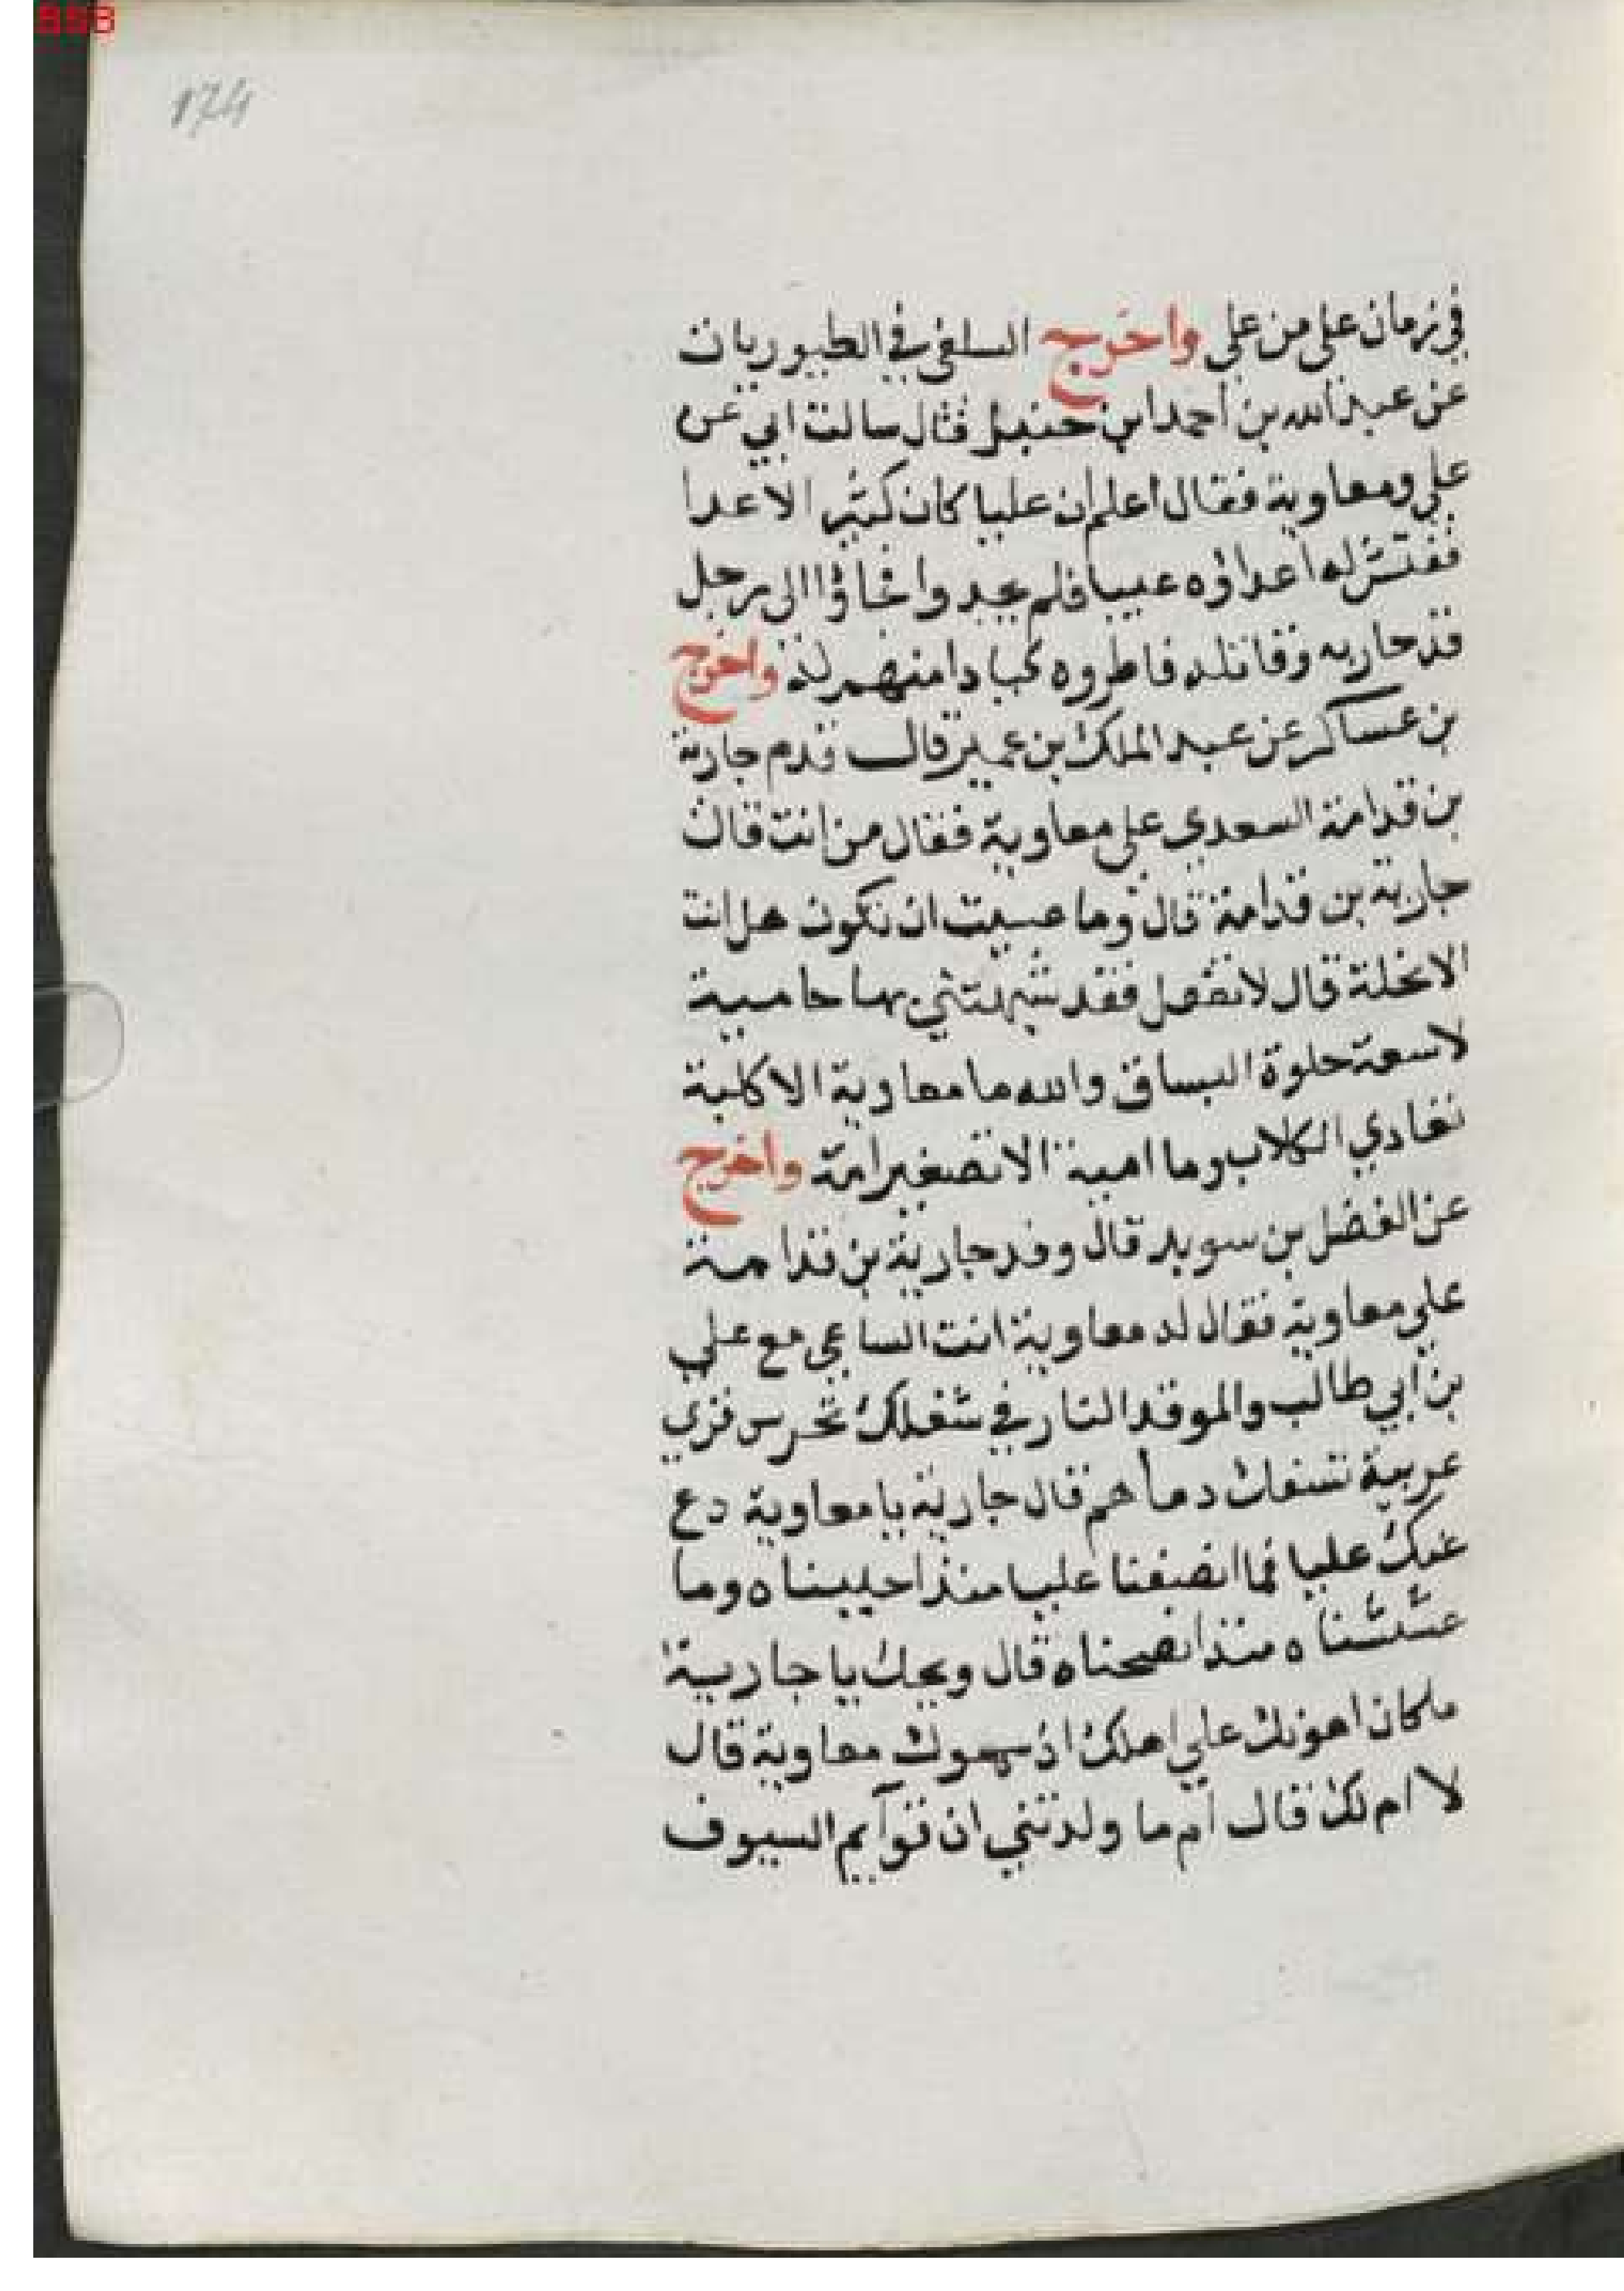 BSB
174
في زمان علي من علي واخرج السلفي في الطيوريات
عن عبد الله بن أحمد ابن حنبل قال سالت ابي عن
علي ومعاوية فقال اعلم ان عليا كان كثير الاعدا
ففتش له اعداؤه عيبا فلم يجدوا فجاؤا الى رجل
قد حاربه وقاتله فاطروه كيادا منهم له واخرج
بن عساكر عن عبد الملك بن عمير قال قدم جارية
بن قدامة السعدي علي معاوية فقال من انت قال
جارية بن قدامة قال وما عسيت ان تكون هل انت
الا نحلة قال لا تفصل فقد شبهتني بها حامية
لاسعة حلوة البساق والله ما معاوية الا كلبة
تعادي الكلاب وما امية الا تصغير امة واخرج
عن الفضل بن سويد قال وفد جارية بن قدامة
علي معاوية فقال له معاوية انت الساعي مع علي
بن ابي طالب والموقد النار في شعلك تحرس قري
عربية تسفك دماهم قال جارية يا معاوية دع
عنك عليا فما انصفنا عليا منذ احليبناه وما
عششناه منذ انصحناه قال ويحك يا جارية
ما كان اهونك علي اهلك اذ سموك معاوية قال
لا ام لك قال أم ما ولدتني ان قوآيم السيوف